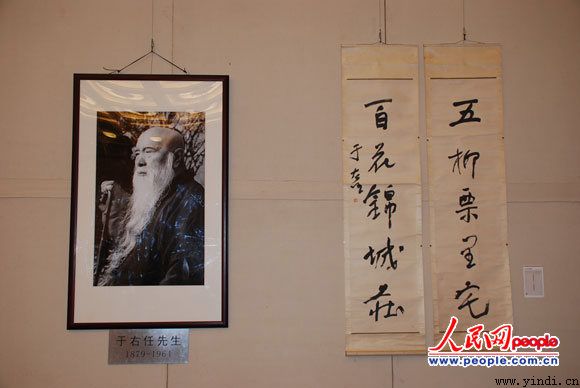 五柳栗里宅
百花錦城莊
于右任
于右任先生
1879-1964
人民网people
www.people.com.cn
www.yindi.cn